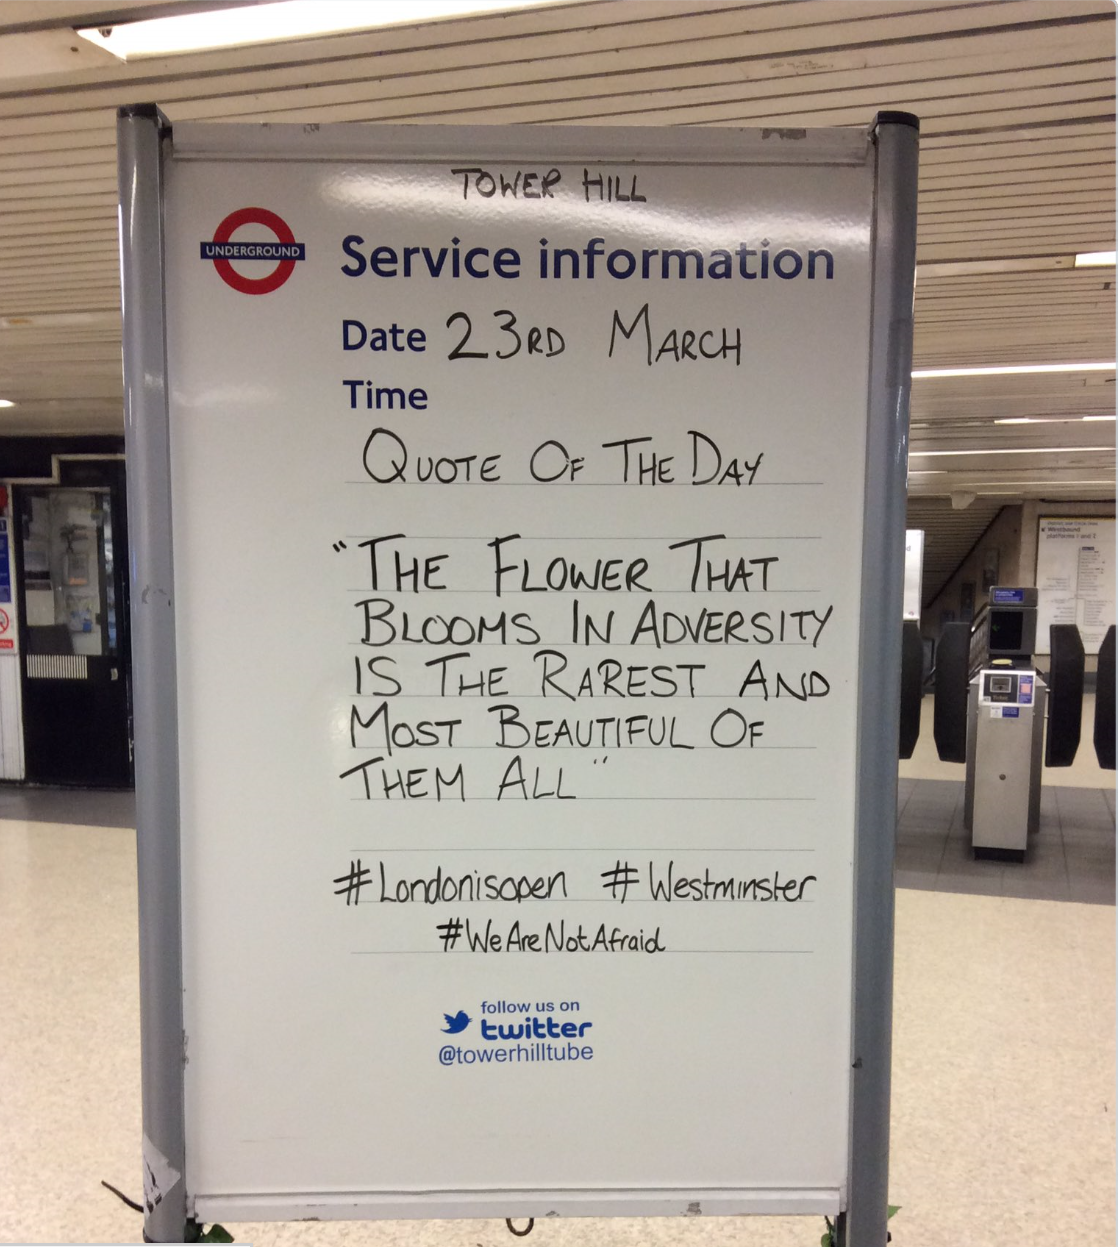 TOWER HILL
UNDERGROUND
Service information
Date 23RD MARCH
Time
QUOTE OF THE DAY
"THE FLOWER THAT
BLOOMS IN ADVERSITY
IS THE RAREST AND
MOST BEAUTIFUL OF
THEM ALL"
#Londonisopen #Westminster
#WeAreNotAfraid
follow us on
twitter
@towerhilltube
Westbound
platforms 1 and 2